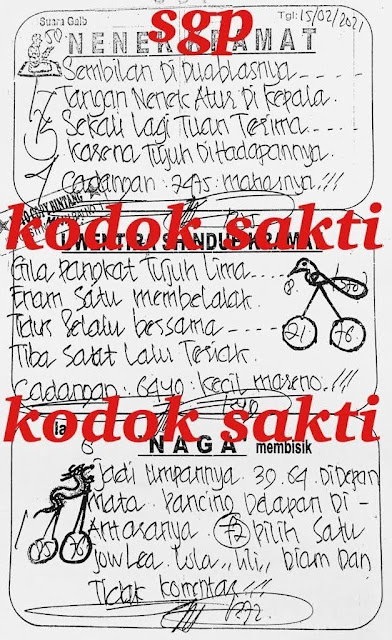 sgp
Suara Gaib
Tgl: 15/02/2021
NENEK KRAMAT
Sembilan Di Duablasnya
Tangan Nenek Atur Di Kepala.
Sekali Lagi Tuan Terima
Karena Tujuh Di Hadapannya.
Cadangan : 7475 : maharnya.!!!
kodok sakti
Gila Pangkat Tujuh Lima
Enam Satu membelalak.
Tidur Selalu bersama
Tiba Saat Lalu Teriak.
Cadangan : 6440 : Kecil mareno.!!!
8.
21
76
kodok sakti
8
"NAGA" membisik
Jadi Umpannya. 30.64. Di Depan
Mata. Pancing Delapan Di -
Antaranya. 72 pilih Satu
Jow Lea. Lula,, Uli,, Diam Dan
Tidak Komentar !!!